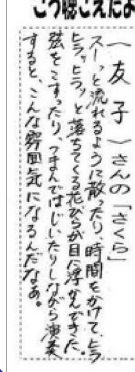 こう聴こえたよ
（友子）さんの「さくら」
スーッと流れるように散ったり、時間をかけてヒラ
ヒラッヒラッと落ちてくる花びらが目に浮かんできた。
弦をこすったり、つまんではじいたりしながら演奏
すると、こんな雰囲気になるんだなぁ。